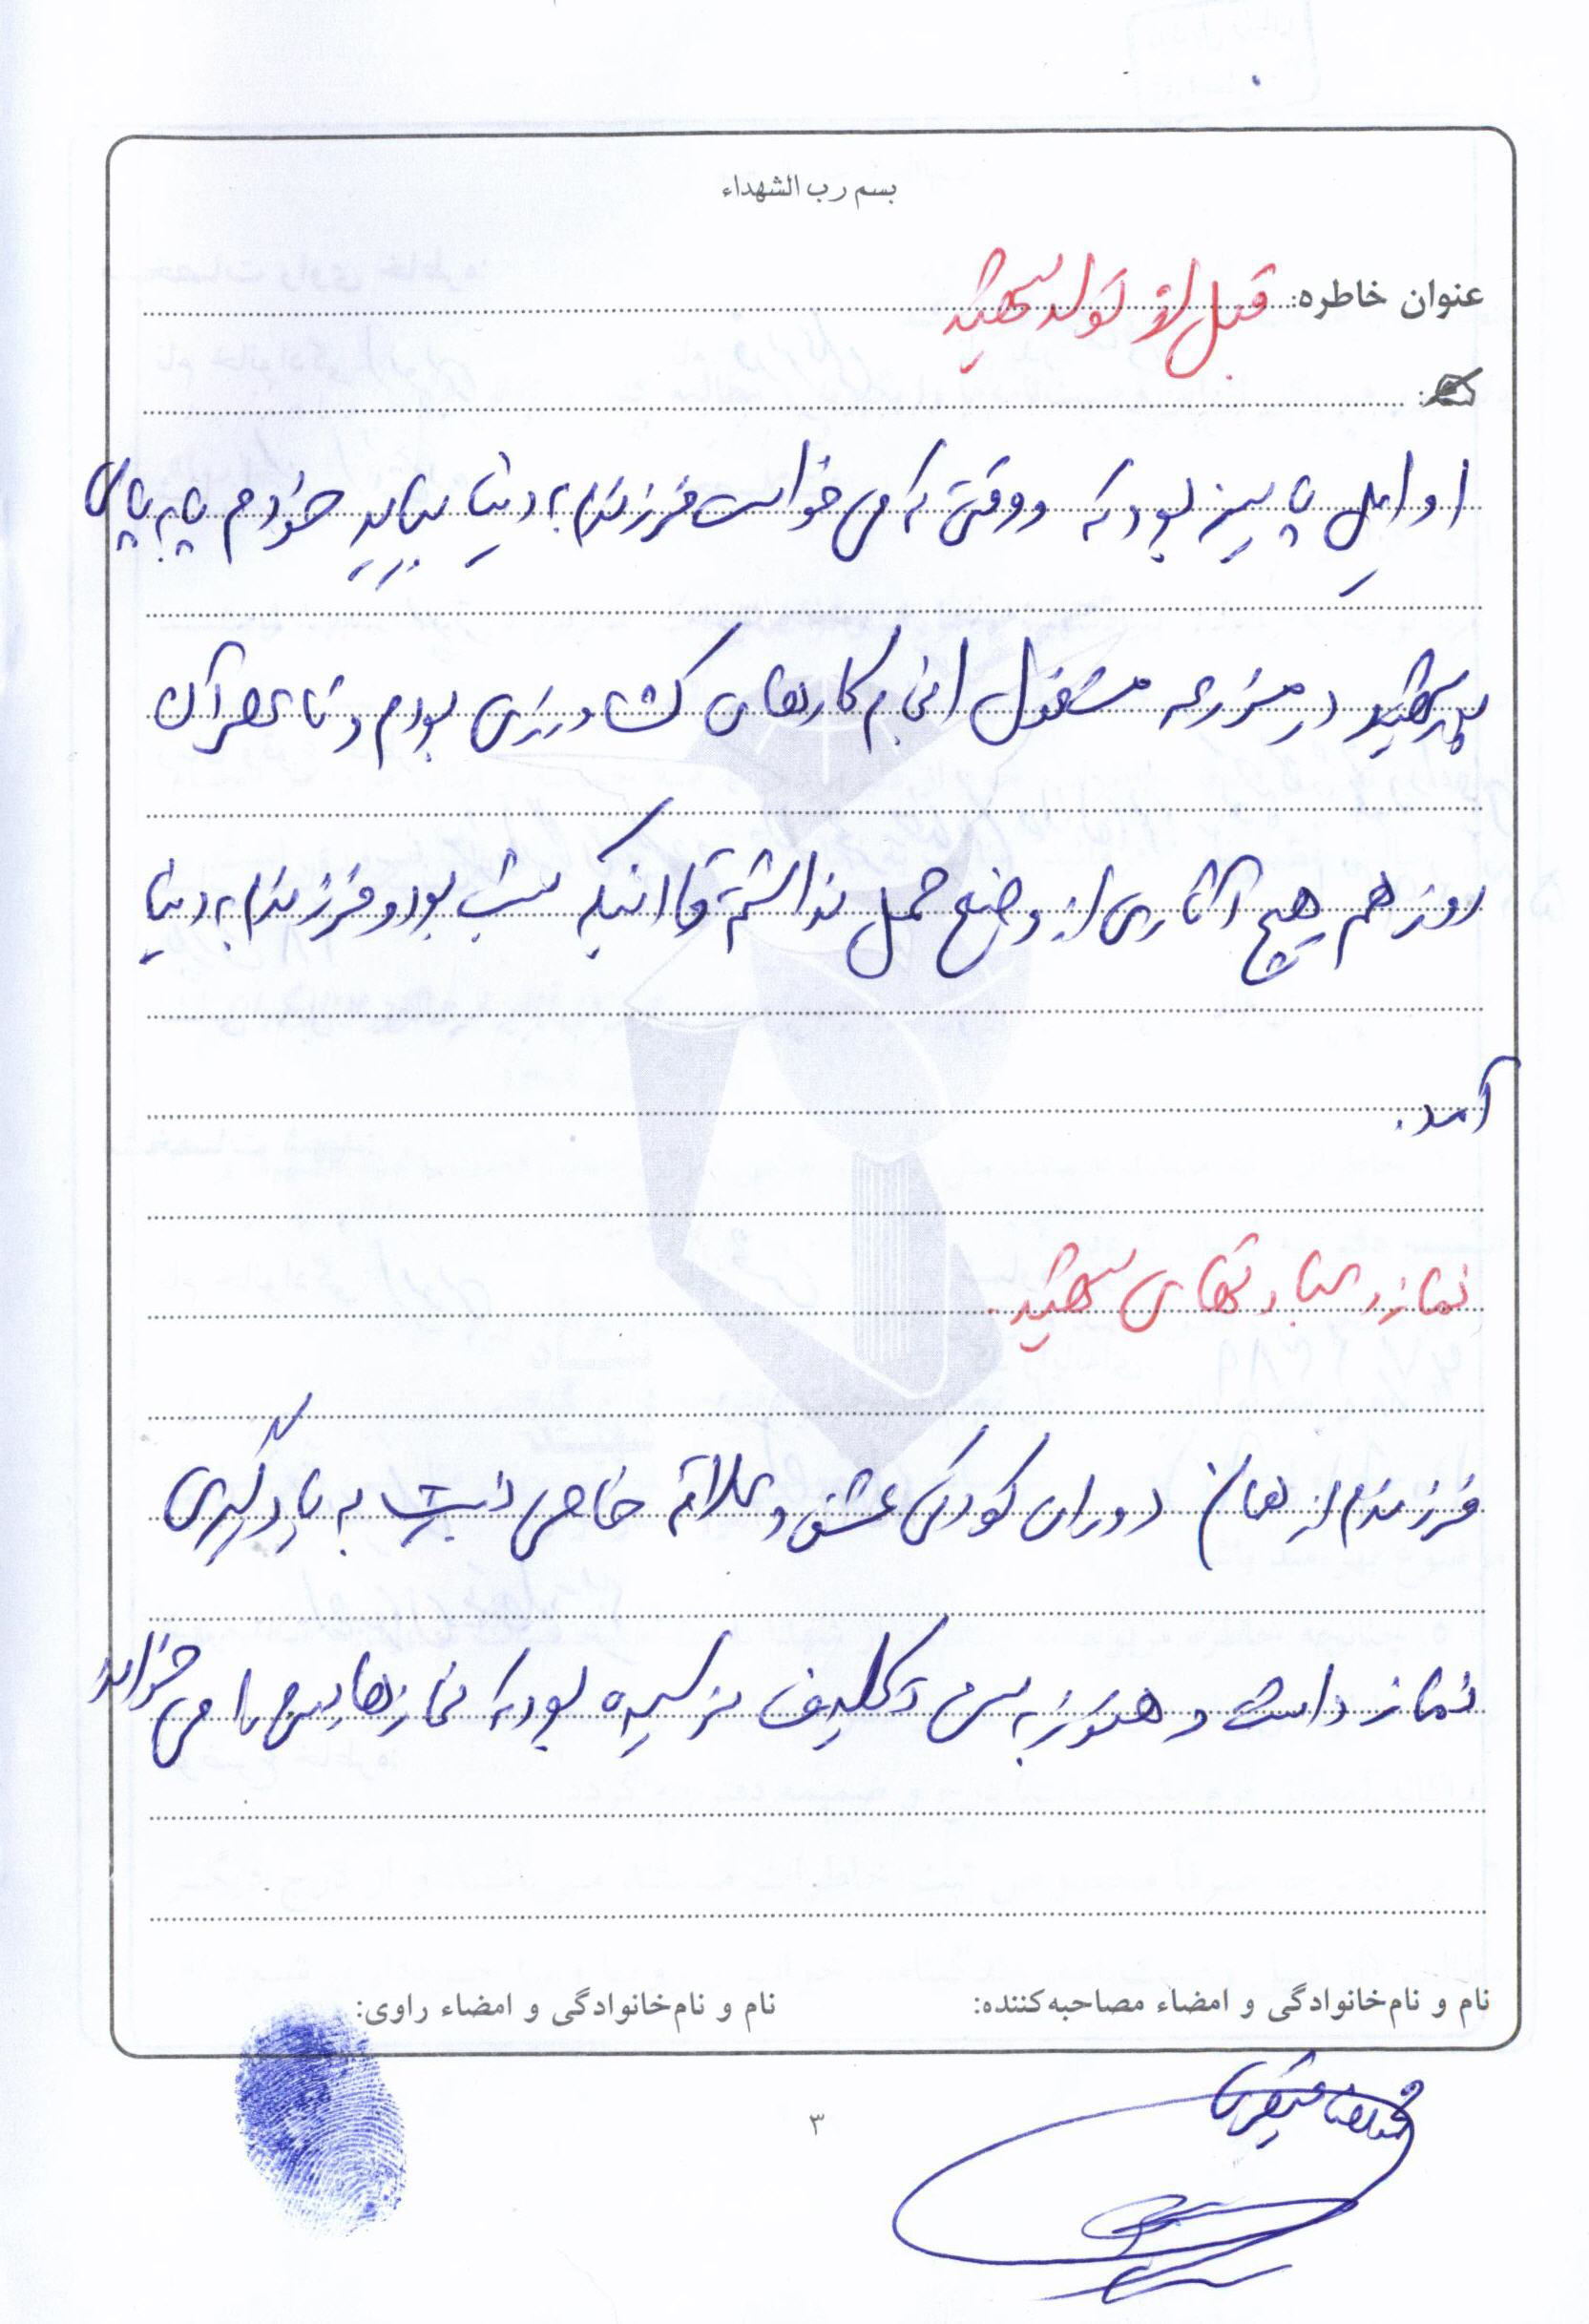 بسم رب الشهداء
عنوان خاطره: قبل از تولد شهید
اوایل پاییز بود که ووقتی که می خواست فرزندم به دنیا بیاید خودم پا به پای
پدر شهید در مزرعه مشغول انجام کارهای کشاورزی بودم و تا عصر آن
روز هم هیچ آثاری از وضع حمل نداشتم تا اینکه شب بود و فرزندم به دنیا
آمد.
نماز و عبادتهای شهید.
فرزندم از همان دوران کودکی عشق و علاقه خاصی نسبت به یادگیری
نماز داشت و هنوز به سن تکلیف نرسیده بود که نمازهایش را می خواند
نام و نام‌خانوادگی و امضاء مصاحبه‌کننده:
نام و نام‌خانوادگی و امضاء راوی:
۳